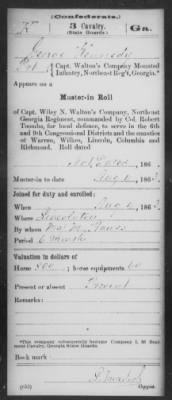 (Confederate.)
K 3 Cavalry. Ga.
(State Guards.)
Kennedy
Capt. Walton's Company Mounted
Infantry, Northeast Reg't, Georgia.*
Appears on a
Muster-in Roll
of Capt. Wiley N. Walton's Company, Northeast
Georgia Regiment, commanded by Col. Robert
Toombs, for local defence, to serve in the 6th
and 9th Congressional Districts and the counties
of Warren, Wilkes, Lincoln, Columbia and
Richmond. Roll dated
Not Dated 186
Muster-in to date Aug 6, 1863.
Joined for duty and enrolled:
When Aug 6, 1863.
Where Lincolnton
By whom
Period 6 months
Valuation in dollars
Horse 800; horse equipments 60
Present or absent Present
Remarks:
*This company subsequently became Company
Cavalry, Georgia State Guards.
Book mark:
Copyist.